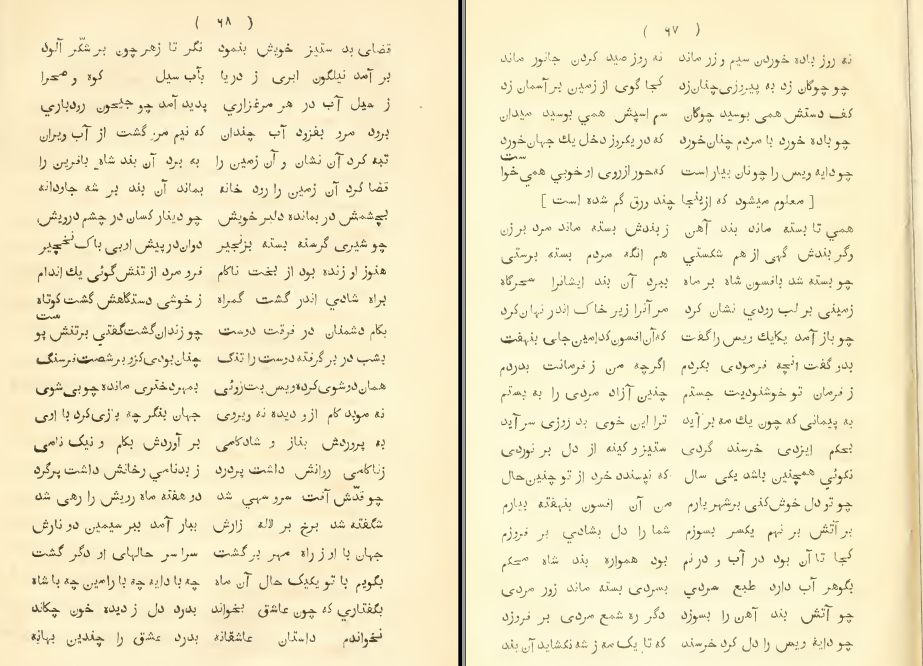 ( ٦٧ )
نه روز باده خوردن سیم و زر ماند نه روز صید کردن جانور ماند
چو چوگان زد به پیروزی چنان زد کجا گوی از زمین بر آسمان زد
کف دستش همی بوسید چوگان سم اسپش همی بوسید میدان
چو باده خورد با مردم چنان خورد که در یکروز دخل یك جهان خورد
چو دایه ویس را چونان بیار است که حور از روی او خوبی همی خواست
[ معلوم میشود که ازینجا چند ورق گم شده است ]
همی تا بسته ماند بند آهن ز بندش بسته ماند مرد بر زن
وگر بندش گهی از هم شکستی هم انگه مردم بسته برستی
چو بسته شد بافسون شاه بر ماه ببرد آن بند ایشانرا سحرگاه
زمینی بر لب رودی نشان کرد مر آنرا زیر خاك اندر نهان کرد
چو باز آمد یکایك ویس را گفت که آن افسون کدامین جای بنهفت
بدو گفت انچه فرمودی بکردم اگرچه من ز فرمانت بدردم
ز فرمان تو خوشنودیت جستم چنین آزاد مردی را به بستم
به پیمانی که چون یك مه بر آید ترا این خوی بد روزی سر آید
بحکم ایزدی خرسند گردی ستیز و کینه از دل بر نوردی
نکوئی همچنین باشد یکی سال که نپسندد خرد از تو چنین حال
چو تو دل خوش کنی برشهر یارم من آن افسون بنهفته بیارم
بر آتش بر نهم یکسر بسوزم شما را دل بشادی بر فروزم
کجا تا آن بود در آب و در نم بود همواره بند شاه محکم
بگوهر آب دارد طبع سردي بسردی بسته ماند زور مردی
چو آتش بند آهن را بسوزد دگر ره شمع مردی بر فروزد
چو دایه ویس را دل کرد خرسند که تا یک مه ز شه نکشاید آن بند
( ٦٨ )
قضای بد ستیز خویش بنمود نگر تا زهر چون بر شکّر آلود
بر آمد نیلگون ابری ز دریا بآب سیل کوه و صحرا
ز سیل آب در هر مرغزاری پدید آمد چو جیحون رودباری
برود مرو بفزود آب چندان که نیم مرو گشت از آب ویران
تبه کرد آن نشان و آن زمین را به برد آن بند شاه بافرین را
قضا کرد آن زمین را رود خانه بماند آن بند بر شه جاودانه
بچشمش در بمانده دلبر خویش چو دینار کسان در چشم درویش
چو شیری گرسنه بسته بزنجیر دوان در پیش او بی باک نخچیر
هنوز او زنده بود از بخت ناکام فرو مرد از تنش گوئی یك اندام
براه شادی اندر گشت گمراه ز خوشی دستگاهش گشت کوتاه
بکام دشمنان در فرقت دوست چو زندان گشت گفتی بر تنش پوست
بشب در بر گرفته دوست را تنگ چنان بودی کزو بر شصت فرسنگ
همان دو شوی کرده ویس بت روئی بمهر دختری مانده چو بی شوی
نه موبد کام ازو دیده نه ویروی جهان بنگر چه بازی کرد با اوی
به پروردش بناز و شادکامی بر آوردش بکام و نیک نامی
زناکامی روانش داشت پردرد ز بدنامی رخانش داشت پرگرد
چو قدّش آفت سرو سهی شد دو هفته ماه رویش را رهی شد
شگفته شد برخ بر لاله زارش ببار آمد ببر سیمین دو نارش
جهان با او ز راه مهر برگشت سراسر حالهای او دگر گشت
بگویم با تو یکیک حال آن ماه چه با دایه چه با رامین چه با شاه
بگفتاري که چون عاشق بخواند بدرد دل ز دیده خون چکاند
نخواندم داستان عاشقانه بدرد عشق را چندین بهانه